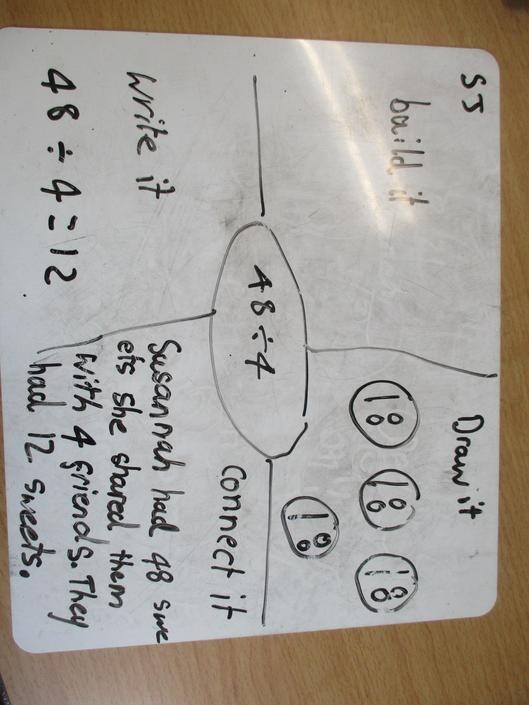 SJ
build it
Draw it
48÷4
Write it
48÷4=12
Connect it
Susannah had 48 swe
ets she shared them
with 4 friends. They
had 12 sweets.